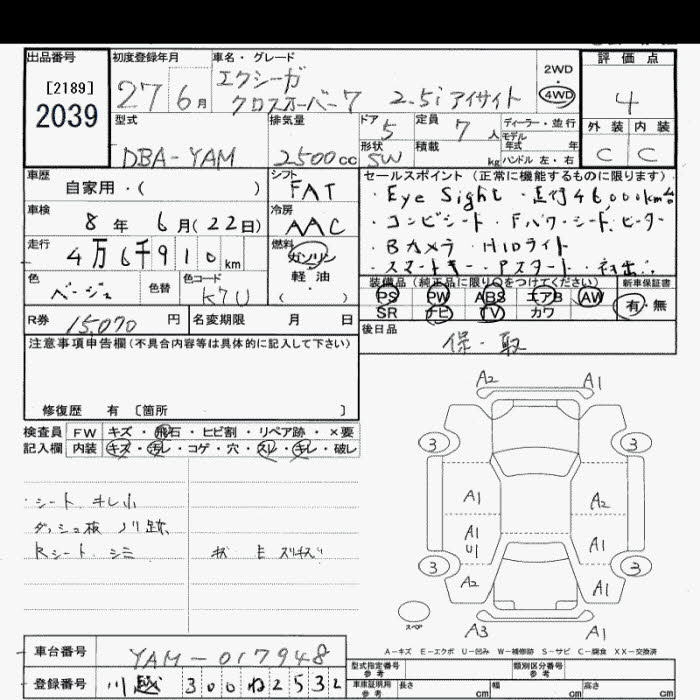 出品番号 初度登録年月 車名・グレード 評価点
[2189] エクシーガ 2WD
2039 27 6月 クロスオーバー7 2.5i アイサイト 4WD 4
型式 排気量 ドア 5 定員 7人 ディーラー・並行 外装 内装
モデル年式 年
DBA-YAM 2500cc 形状 SW 積載 kg ハンドル 左・右 C C
車歴 シフト セールスポイント(正常に機能するものに限ります)
自家用・( ) FAT ・Eye Sight ・走行46000km台
車検 冷房 ・コンビシート・Fパワーシート、ヒーター
8年 6月(22日) AAC ・Bカメラ・HIDライト
走行 燃料 ・スマートキー・Pスタート
4万6千910km ガソリン 軽油 ( )
色 色替 色コード 装備品(純正品に限り○をつけてください) 新車保証書
ベージュ K7U PS PW ABS エアB AW 有・無
SR ナビ TV カワ
R券 15,070円 名変期限 月 日 後日品
保・取
注意事項申告欄(不具合内容等は具体的に記入して下さい)
修復歴 有 〔箇所 〕
検査員 FW キズ・飛石・ヒビ割・リペア跡・×要
記入欄 内装 キズ・汚レ・コゲ・穴・スレ・キレ・破レ
A2 A1
3 3
A1 A2
A1 U1 A1
3 3
A2 A1
スペア A3 A1
・シート キレ小
ダッシュ板 ノリ跡
Rシート シミ
A-キズ E-エクボ U-凹み W-補修跡 S-サビ C-腐食 XX-交換済
車台番号 YAM-017948 型式指定番号 参考 類別区分番号 参考
登録番号 川越 300 ね 2532 車庫証明用 参考 長さ cm 幅 cm 高さ cm